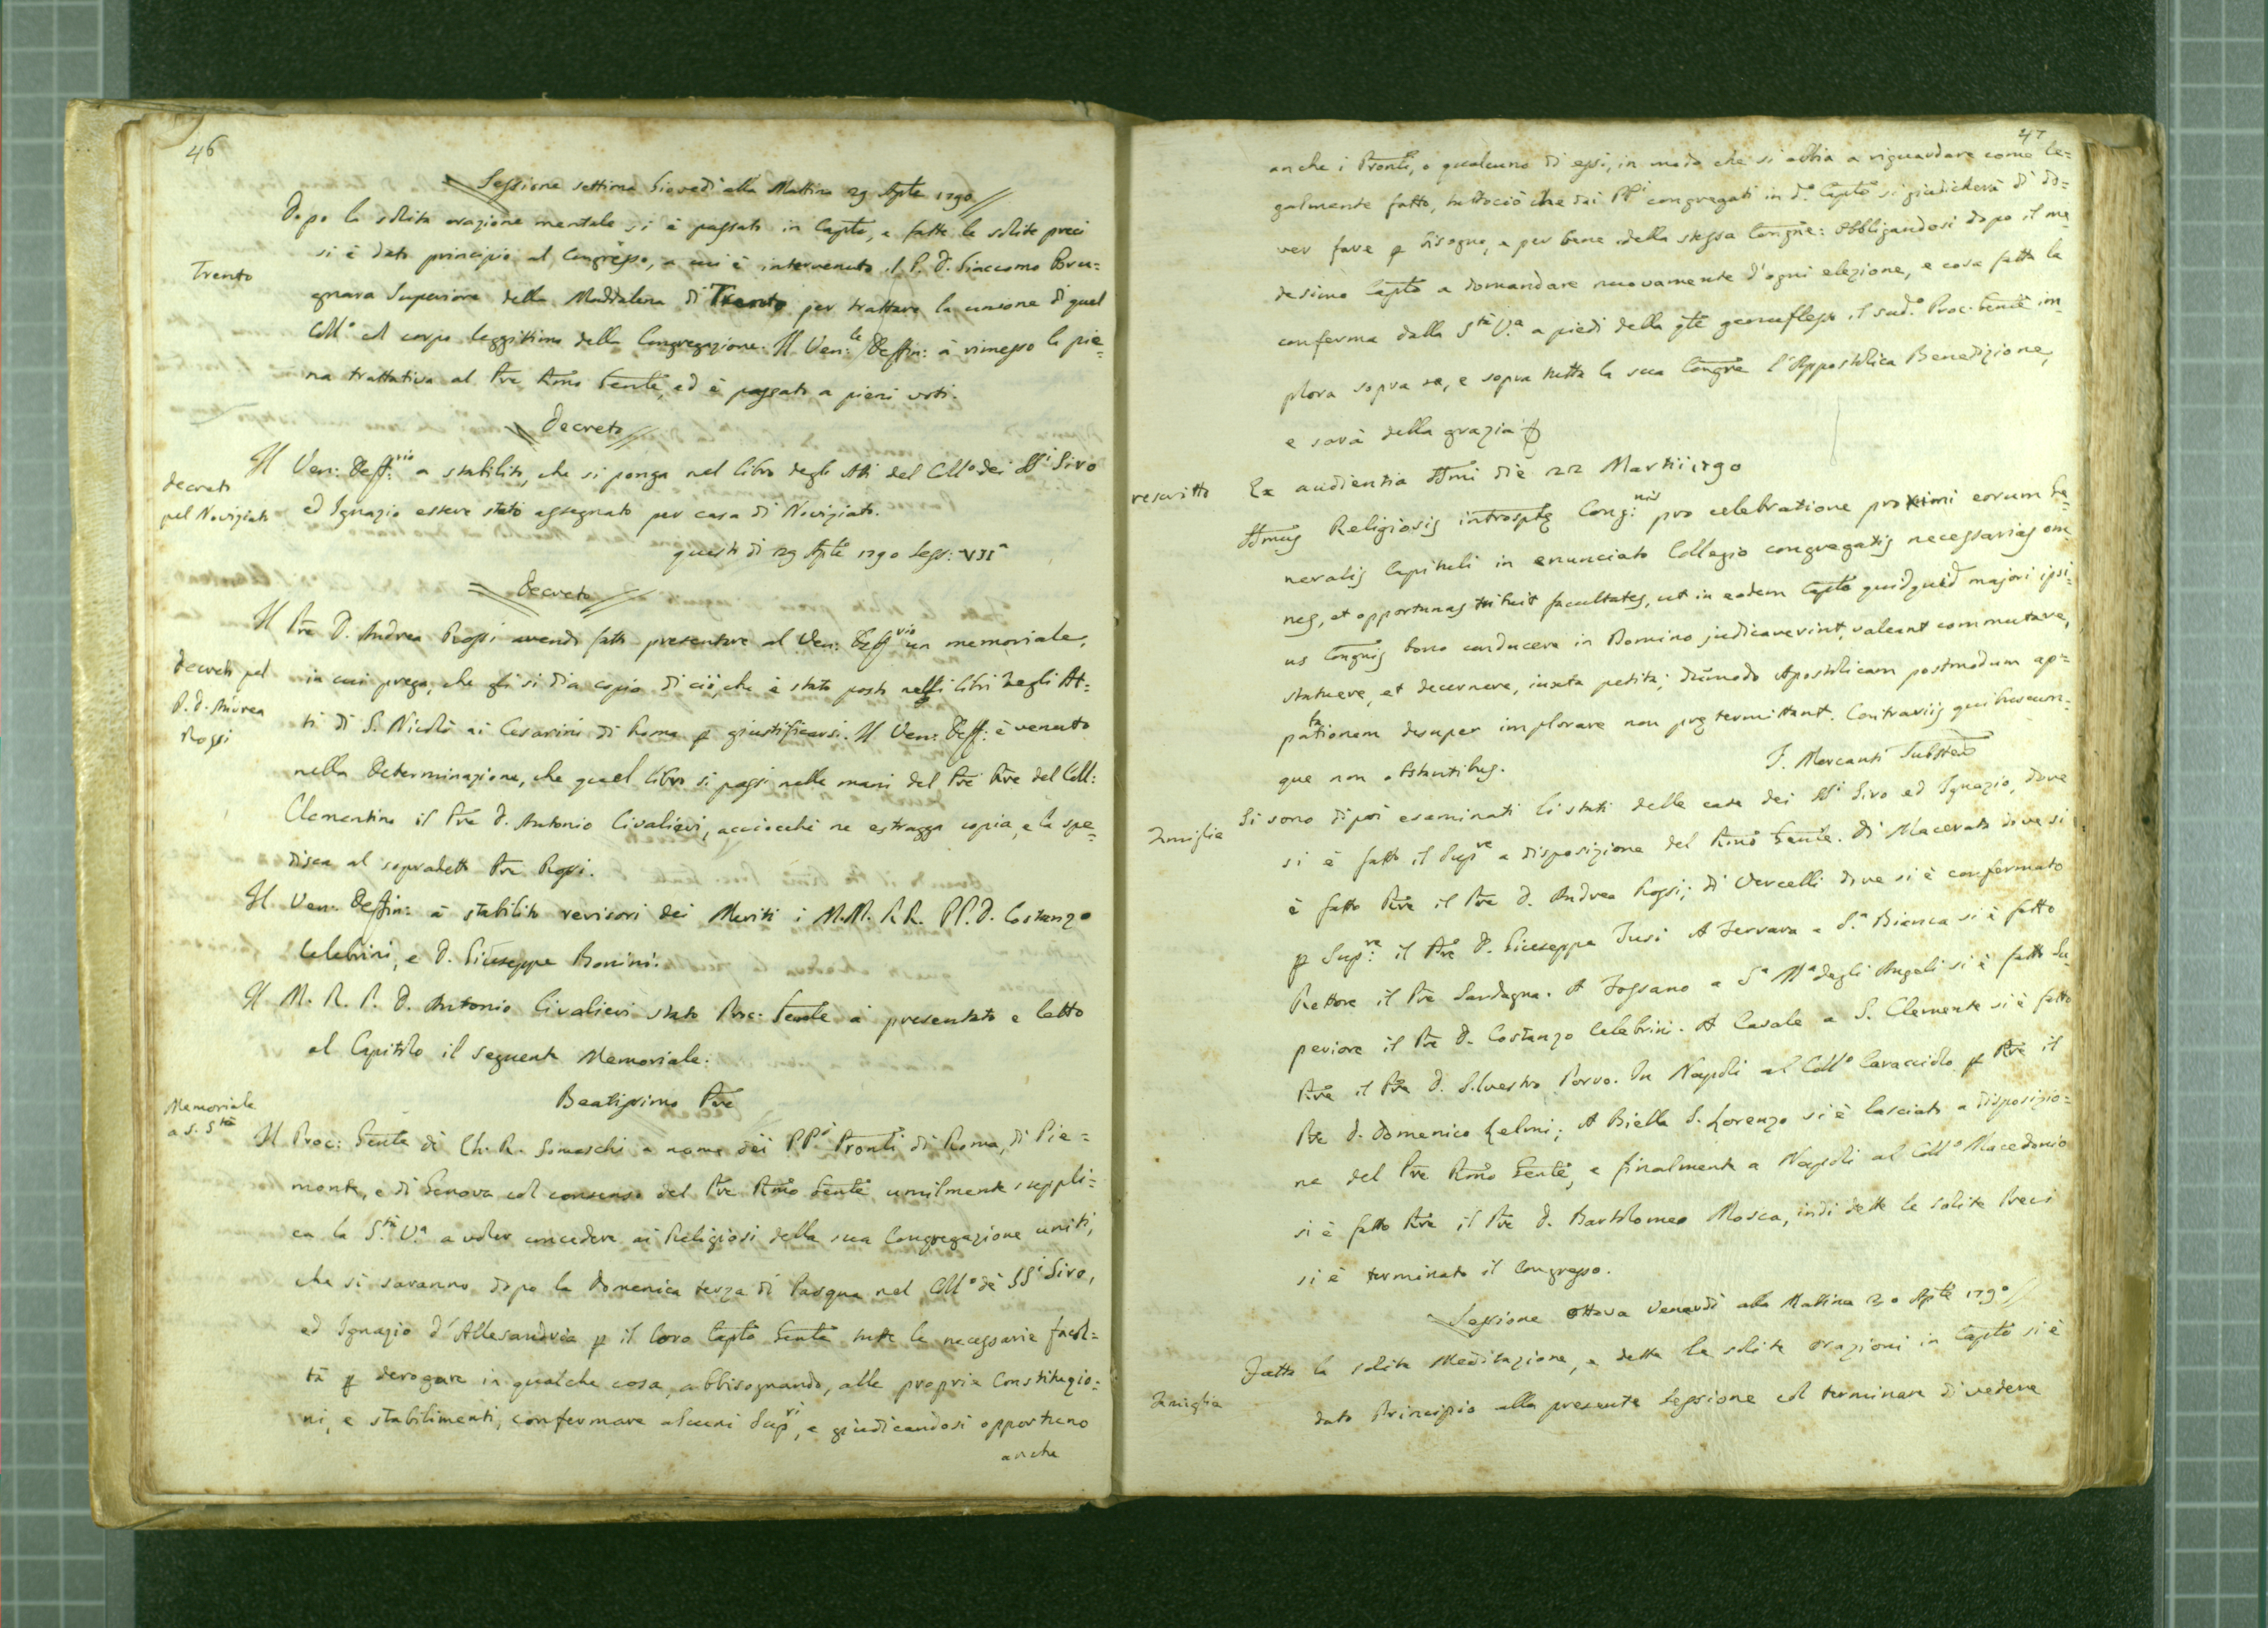 46
Sessione settima Giovedì alla Mattina 29 Aple 1790
Dopo la solita orazione mentale si è passato in Caplo, e fatte le solite preci
si è dato principio al Congresso, a cui è intervenuto il P. D. Giaccomo Bru=
Trento
gnara Superiore della Maddalena di Trento per trattare la unione di quel
Collo al corpo leggittimo della Congregazione. Il Ven:le Deffin: à rimesso la pie=
na trattativa al Pre Rmo Genle, ed è passato a pieni voti.
Decreto
Il Ven: Deff:rio a stabilito, che si ponga nel libro degli Atti del Collo dei SSi Siro
decreto
pel Noviziato
ed Ignazio essere stato assegnato per casa di Noviziato.
questo dì 29 Aple 1790 Sess: VIIa
Decreto
Il Pre D. Andrea Rossi avendo fatto presentare al Ven: Deffrio un memoriale,
decreto pel
P. D. Andrea
Rossi
in cui prega, che gli si dia copia di ciò, che è stato posto nelli libri degli At=
ti di S. Nicolò ai Cesarini di Roma p giustificarsi. Il Ven: Deff: è venuto
nella determinazione, che quel libro si passi nelle mani del Pre Pre del Coll:
Clementino il Pre D. Antonio Civalieri, acciocchè ne estragga copia, e la spe=
disca al sopradetto Pre Rossi.
Il Ven: Deffin: à stabilito revisori dei Meriti i M.M. R.R. PP. D. Costanzo
Celebrini, e D. Giuseppe Bonini.
Il M. R. P. D. Antonio Civalieri stato Proc: Genle à presentato e letto
al Capitolo il seguente Memoriale:
Beatissimo Pre
Memoriale
a S. Stà
Il Proc: Genle di Ch. R. Somaschi a nome dei PPi Pronli di Roma, di Pie=
monte, e di Genova col consenso del Pre Rmo Genle umilmente suppli=
ca la S.tà V.a a voler concedere ai Religiosi della sua Congregazione uniti,
che si saranno dopo la Domenica terza di Pasqua nel Collo dè SSi Siro,
ed Ignazio d'Allesandria p il loro Caplo Genle tutte le necessarie facol=
tà p derogare in qualche cosa, abbisognando, alle proprie Constituzio=
ni, e stabilimenti, confermare alcuni Supri, e giudicandosi opportuno
anche
47
anche i Pronli, o qualcuno di essi, in modo che si abbia a riguardare come le=
galmente fatto, tuttociò che dai PPi congregati in do Caplo si giudicherà di do=
ver fare p bisogno, e per bene della stessa Congne: obbligandosi dopo il me=
desimo Caplo a domandare nuovamente d'ogni elezione, e cosa fatta la
conferma dalla Stà V.a a piedi della qle genuflesso il sudo Proc. Genle im=
plora sopra se, e sopra tutta la sua Congne l'Appostolica Benedizione,
e sarà della grazia
rescritto
Ex audientia SSmi die 22 Martii 1790
SSmus Religiosis introsptę Cong:nis pro celebratione proximi eorum Ge=
neralis Capituli in enunciato Collegio congregatis necessarias om=
nes, et opportunas tribuit facultates, ut in eodem Caplo quidquid majori ipsi=
us Congnis bono conducere in Domino judicaverint, valeant commutare,
statuere, et decernere, iuxta petita; dummodo Apostolicam postmodum ap=
tationem desuper implorare non prętermittant. Contrariis quibuscun=
que non obstantibus.
F. Mercanti Substus
Famiglie
Si sono dipoi esaminati li stati delle case dei SSi Siro ed Ignazio, dove
si è fatto il Supre a disposizione del Rmo Genle. Di Macerata dove si
è fatto Pre il Pre D. Andrea Rossi; di Vercelli dove si è confermato
p Sup:re il Pre D. Giuseppe Tusi A Ferrara a S.a Bianca si è fatto
Rettore il Pre Sardagna. A Fossano a Sa Ma degli Angeli si è fatto Su=
periore il Pre D. Costanzo Celebrini. A Casale a S. Clemente si è fatto
Pre il Pre D. Silvestro Porro. In Napoli al Collo Caracciolo p Pre il
Pre D. Domenico Lelmi; A Biella S. Lorenzo si è lasciato a disposizio=
ne del Pre Rmo Genle, e finalmente a Napoli al Collo Macedonio
si è fatto Pre il Pre D. Bartolomeo Mosca, indi dette le solite Preci
si è terminato il Congresso.
Sessione ottava Venerdì alla Mattina 30 Aple 1790
Fatta la solita Meditazione, e dette le solite orazioni in Caplo si è
Famiglie
dato Principio alla presente Sessione col terminare di vedere